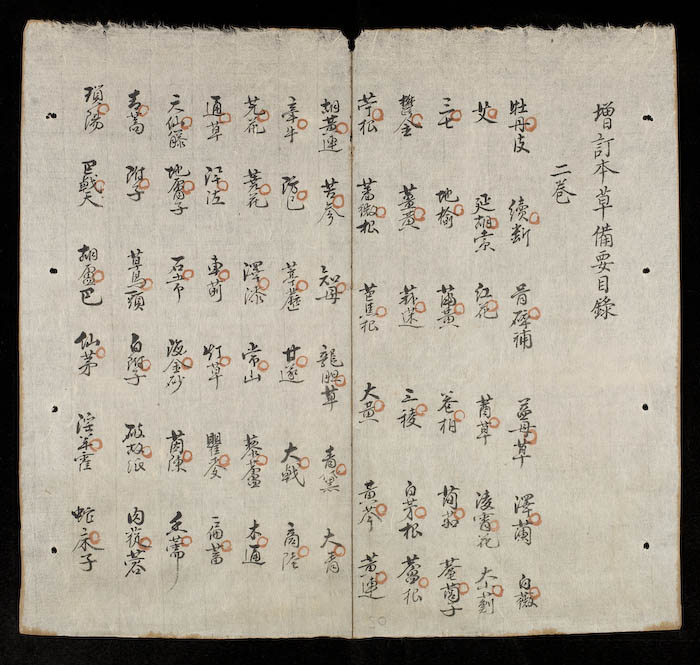 增訂本草備要目錄
二卷
牡丹皮 續断 骨碎補 益母草 澤蘭 白薇
艾 延胡索 红花 茜草 凌霄花 大小薊
三七 地榆 蒲黄 卷柏 䕡茹 菴䕡子
鬱金 薑黄 莪蒁 三稜 白茅根 蘆根
苧根 薔薇根 芭蕉根 大黄 黄芩 黄連
胡黄連 苦參 知母 龍胆草 青黛 大青
牽牛 防己 葶藶 甘遂 大戟 商陸
芫花 蕘花 澤漆 常山 藜蘆 木通
通草 澤泻 車前 灯草 瞿麦 萹蓄
天仙籐 地膚子 石韦 海金砂 茵陳 香薷
青蒿 附子 草烏頭 白附子 破故紙 肉蓯蓉
瑣陽 巴戟天 胡盧巴 仙茅 淫羊藿 蛇床子